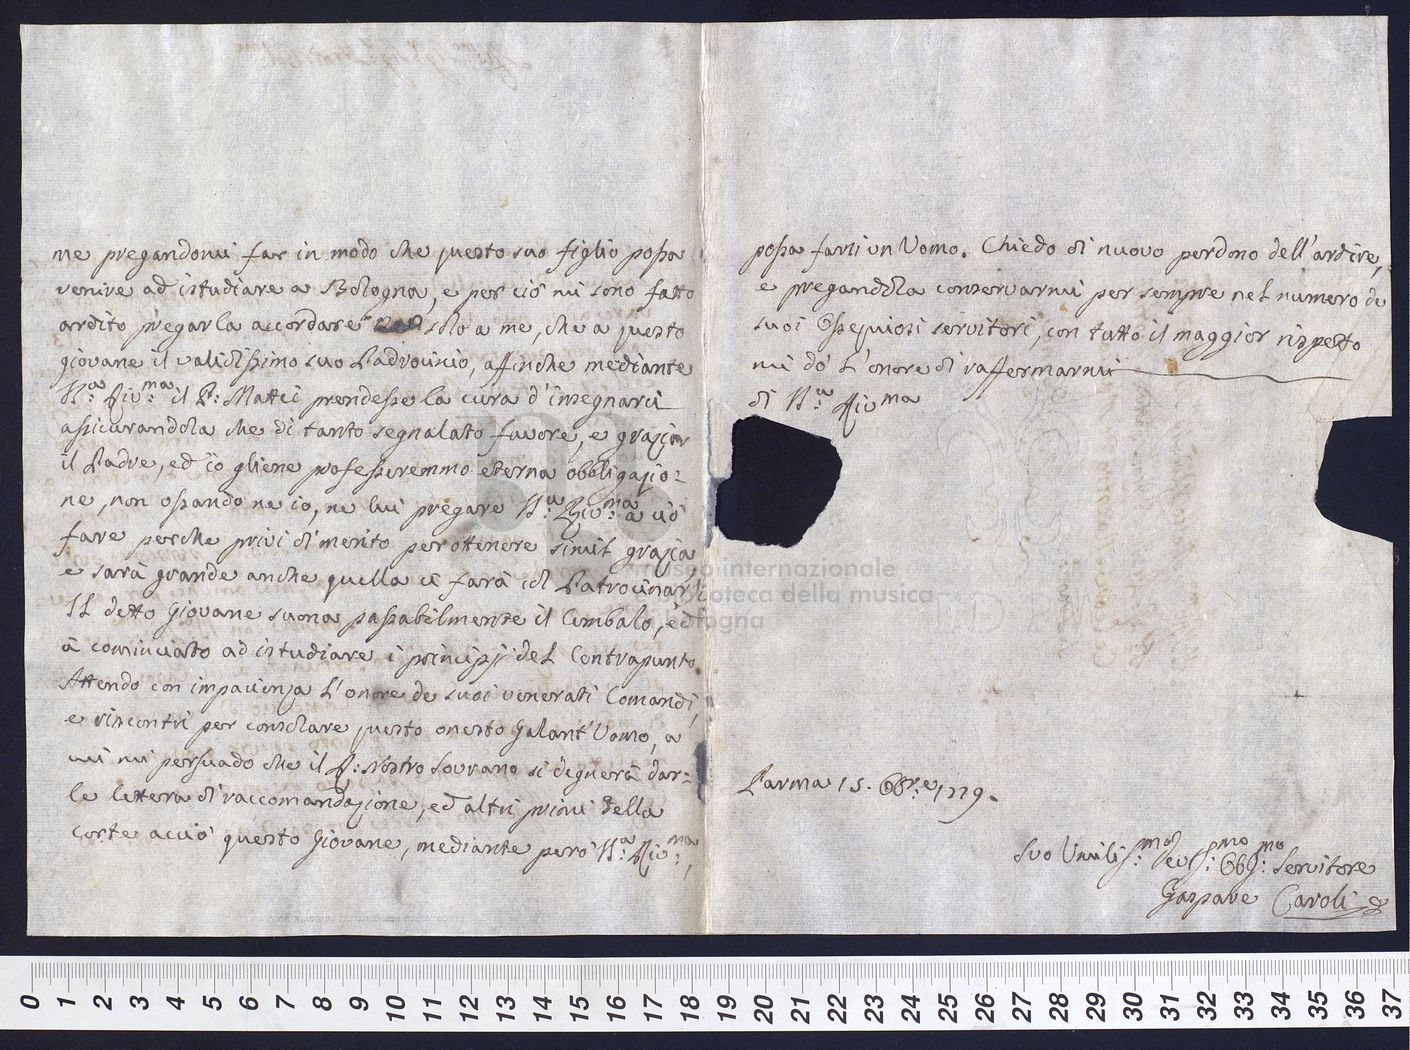 me pregandomi far in modo che questo suo figlio possa
venire ad istudiare a Bologna, e per ciò mi sono fatto
ardito pregarla accordare solo a me, che a questo
giovane il validissimo suo Padrocinio, affinche mediante
V.ª Riv.ma il P: Mattei prendesse la cura d'insegnarci
assicurandola che di tanto segnalato favore, e grazia
il Padre, ed io gliene professeremmo eterna obbligazio-
ne, non ossando ne io, ne lui pregare V.ª Riv.ma a ciò
fare perche privi di merito per ottenere simil grazia
e sarà grande anche quella ci farà col Patrocinarci
Il detto Giovane suona passabilmente il Cimbalo, ed
à cominciato ad istudiare i principj del Contrapunto.
Attendo con impacienza l'onore de suoi venerati Comandi,
e rincontri per consolare questo onesto Galant'Uomo, a
cui mi persuado che il R: Nostro Sovrano si degnerà dar-
le lettera di raccomandazione, ed altri primi della
Corte acciò questo Giovane, mediante però V.ª Riv.ma,
possa farsi un Uomo. Chiedo di nuovo perdono dell'ardire,
e pregandola conservarmi per sempre nel numero de
suoi Ossequiosi servitori, con tutto il maggior rispetto
mi dò l'onore di raffermarmi
di V.ª Riv.ma
Parma 15. 8br.e 1779.
Suo Umilis.mo Dev.mo Obb.mo Servitore
Gaspare Caroli
museo internazionale
e biblioteca della musica
di bologna
0 1 2 3 4 5 6 7 8 9 10 11 12 13 14 15 16 17 18 19 20 21 22 23 24 25 26 27 28 29 30 31 32 33 34 35 36 37